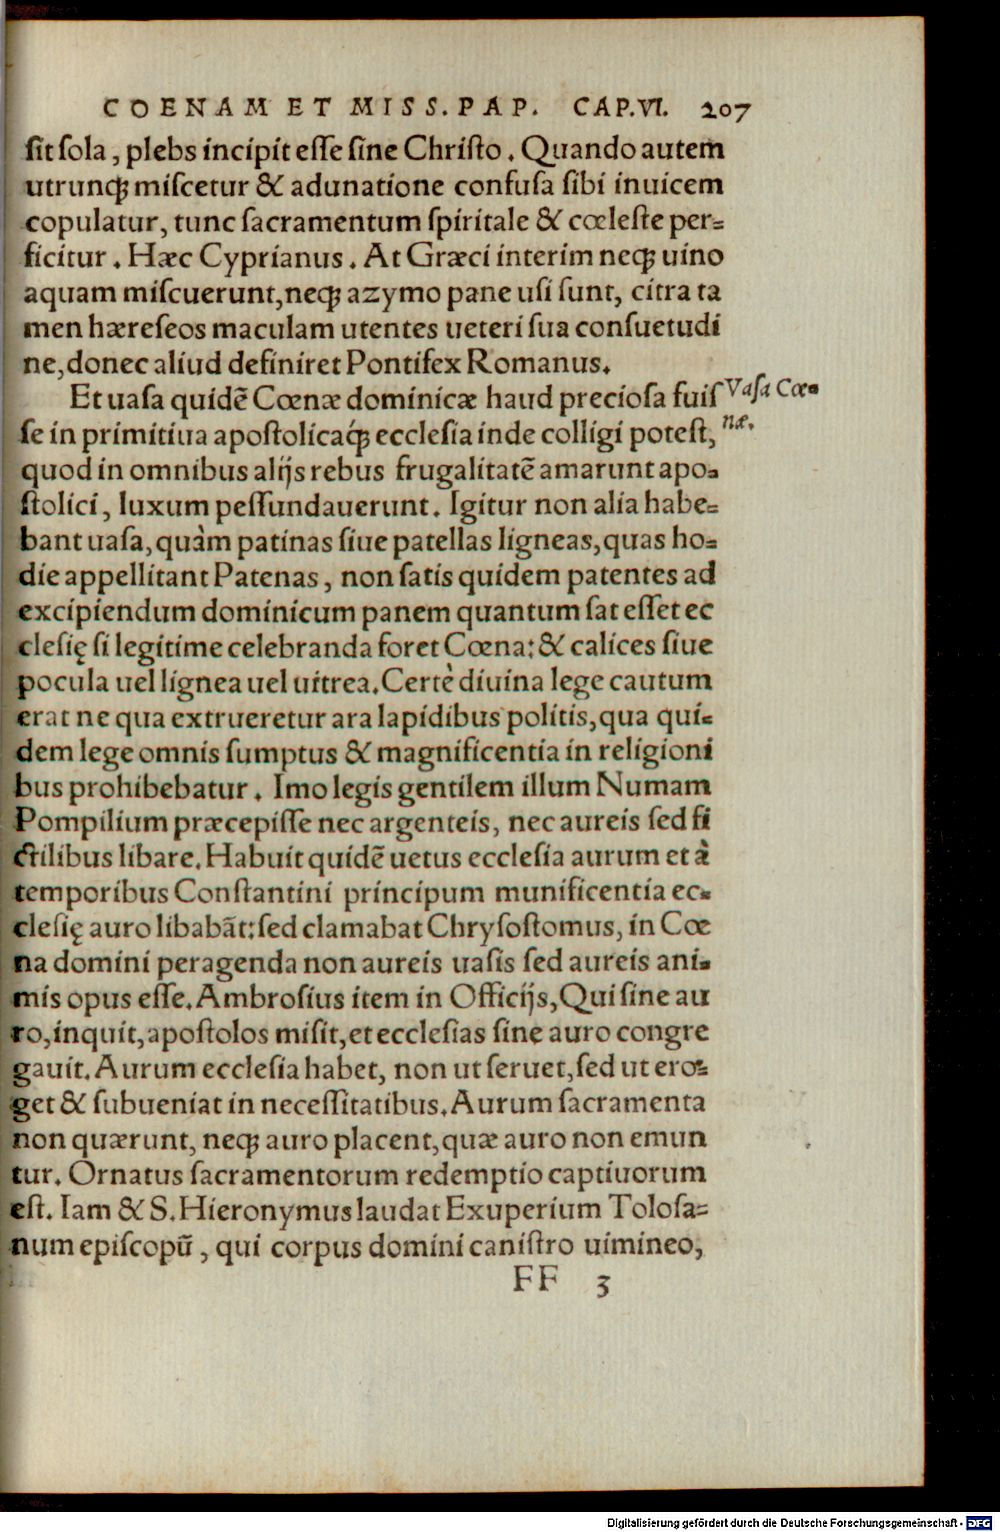 COENAM ET MISS. PAP. CAP. VI. 207
ſit ſola, plebs incipit eſſe ſine Chriſto. Quando autem
utrunq; miſcetur & adunatione confuſa ſibi inuicem
copulatur, tunc ſacramentum ſpiritale & cœleſte per=
ficitur. Hæc Cyprianus. At Græci interim neq; uino
aquam miſcuerunt, neq; azymo pane uſi ſunt, citra ta
men hæreſeos maculam utentes ueteri ſua conſuetudi
ne, donec aliud definiret Pontifex Romanus.
Et uaſa quidē Cœnæ dominicæ haud precioſa fuiſ
Vaſa Cœ=
næ.
ſe in primitiua apoſtolicaq́; ecclesia inde colligi poteſt,
quod in omnibus alijs rebus frugalitatē amarunt apo=
ſtolici, luxum peſſundauerunt. Igitur non alia habe=
bant uaſa, quàm patinas ſiue patellas ligneas, quas ho=
die appellitant Patenas, non ſatis quidem patentes ad
excipiendum dominicum panem quantum ſat eſſet ec
cleſię ſi legitime celebranda foret Cœna: & calices ſiue
pocula uel lignea uel uitrea. Certè diuina lege cautum
erat ne qua extrueretur ara lapidibus politis, qua qui=
dem lege omnis ſumptus & magnificentia in religioni
bus prohibebatur. Imo legis gentilem illum Numam
Pompilium præcepiſſe nec argenteis, nec aureis ſed fi
ctilibus libare. Habuit quidē uetus eccleſia aurum et à
temporibus Conſtantini principum munificentia ec=
cleſię auro libabāt: ſed clamabat Chryſoſtomus, in Cœ
na domini peragenda non aureis uaſis ſed aureis ani=
mis opus eſſe. Ambroſius item in Officijs, Qui ſine au
ro, inquit, apoſtolos miſit, et eccleſias ſine auro congre
gauit. Aurum eccleſia habet, non ut ſeruet, ſed ut ero=
get & ſubueniat in neceſſitatibus. Aurum ſacramenta
non quærunt, neq; auro placent, quæ auro non emun
tur. Ornatus ſacramentorum redemptio captiuorum
eſt. Iam & S. Hieronymus laudat Exuperium Toloſa=
num epiſcopū, qui corpus domini caniſtro uimineo,
FF 3
Digitalisierung gefördert durch die Deutsche Forschungsgemeinschaft - DFG